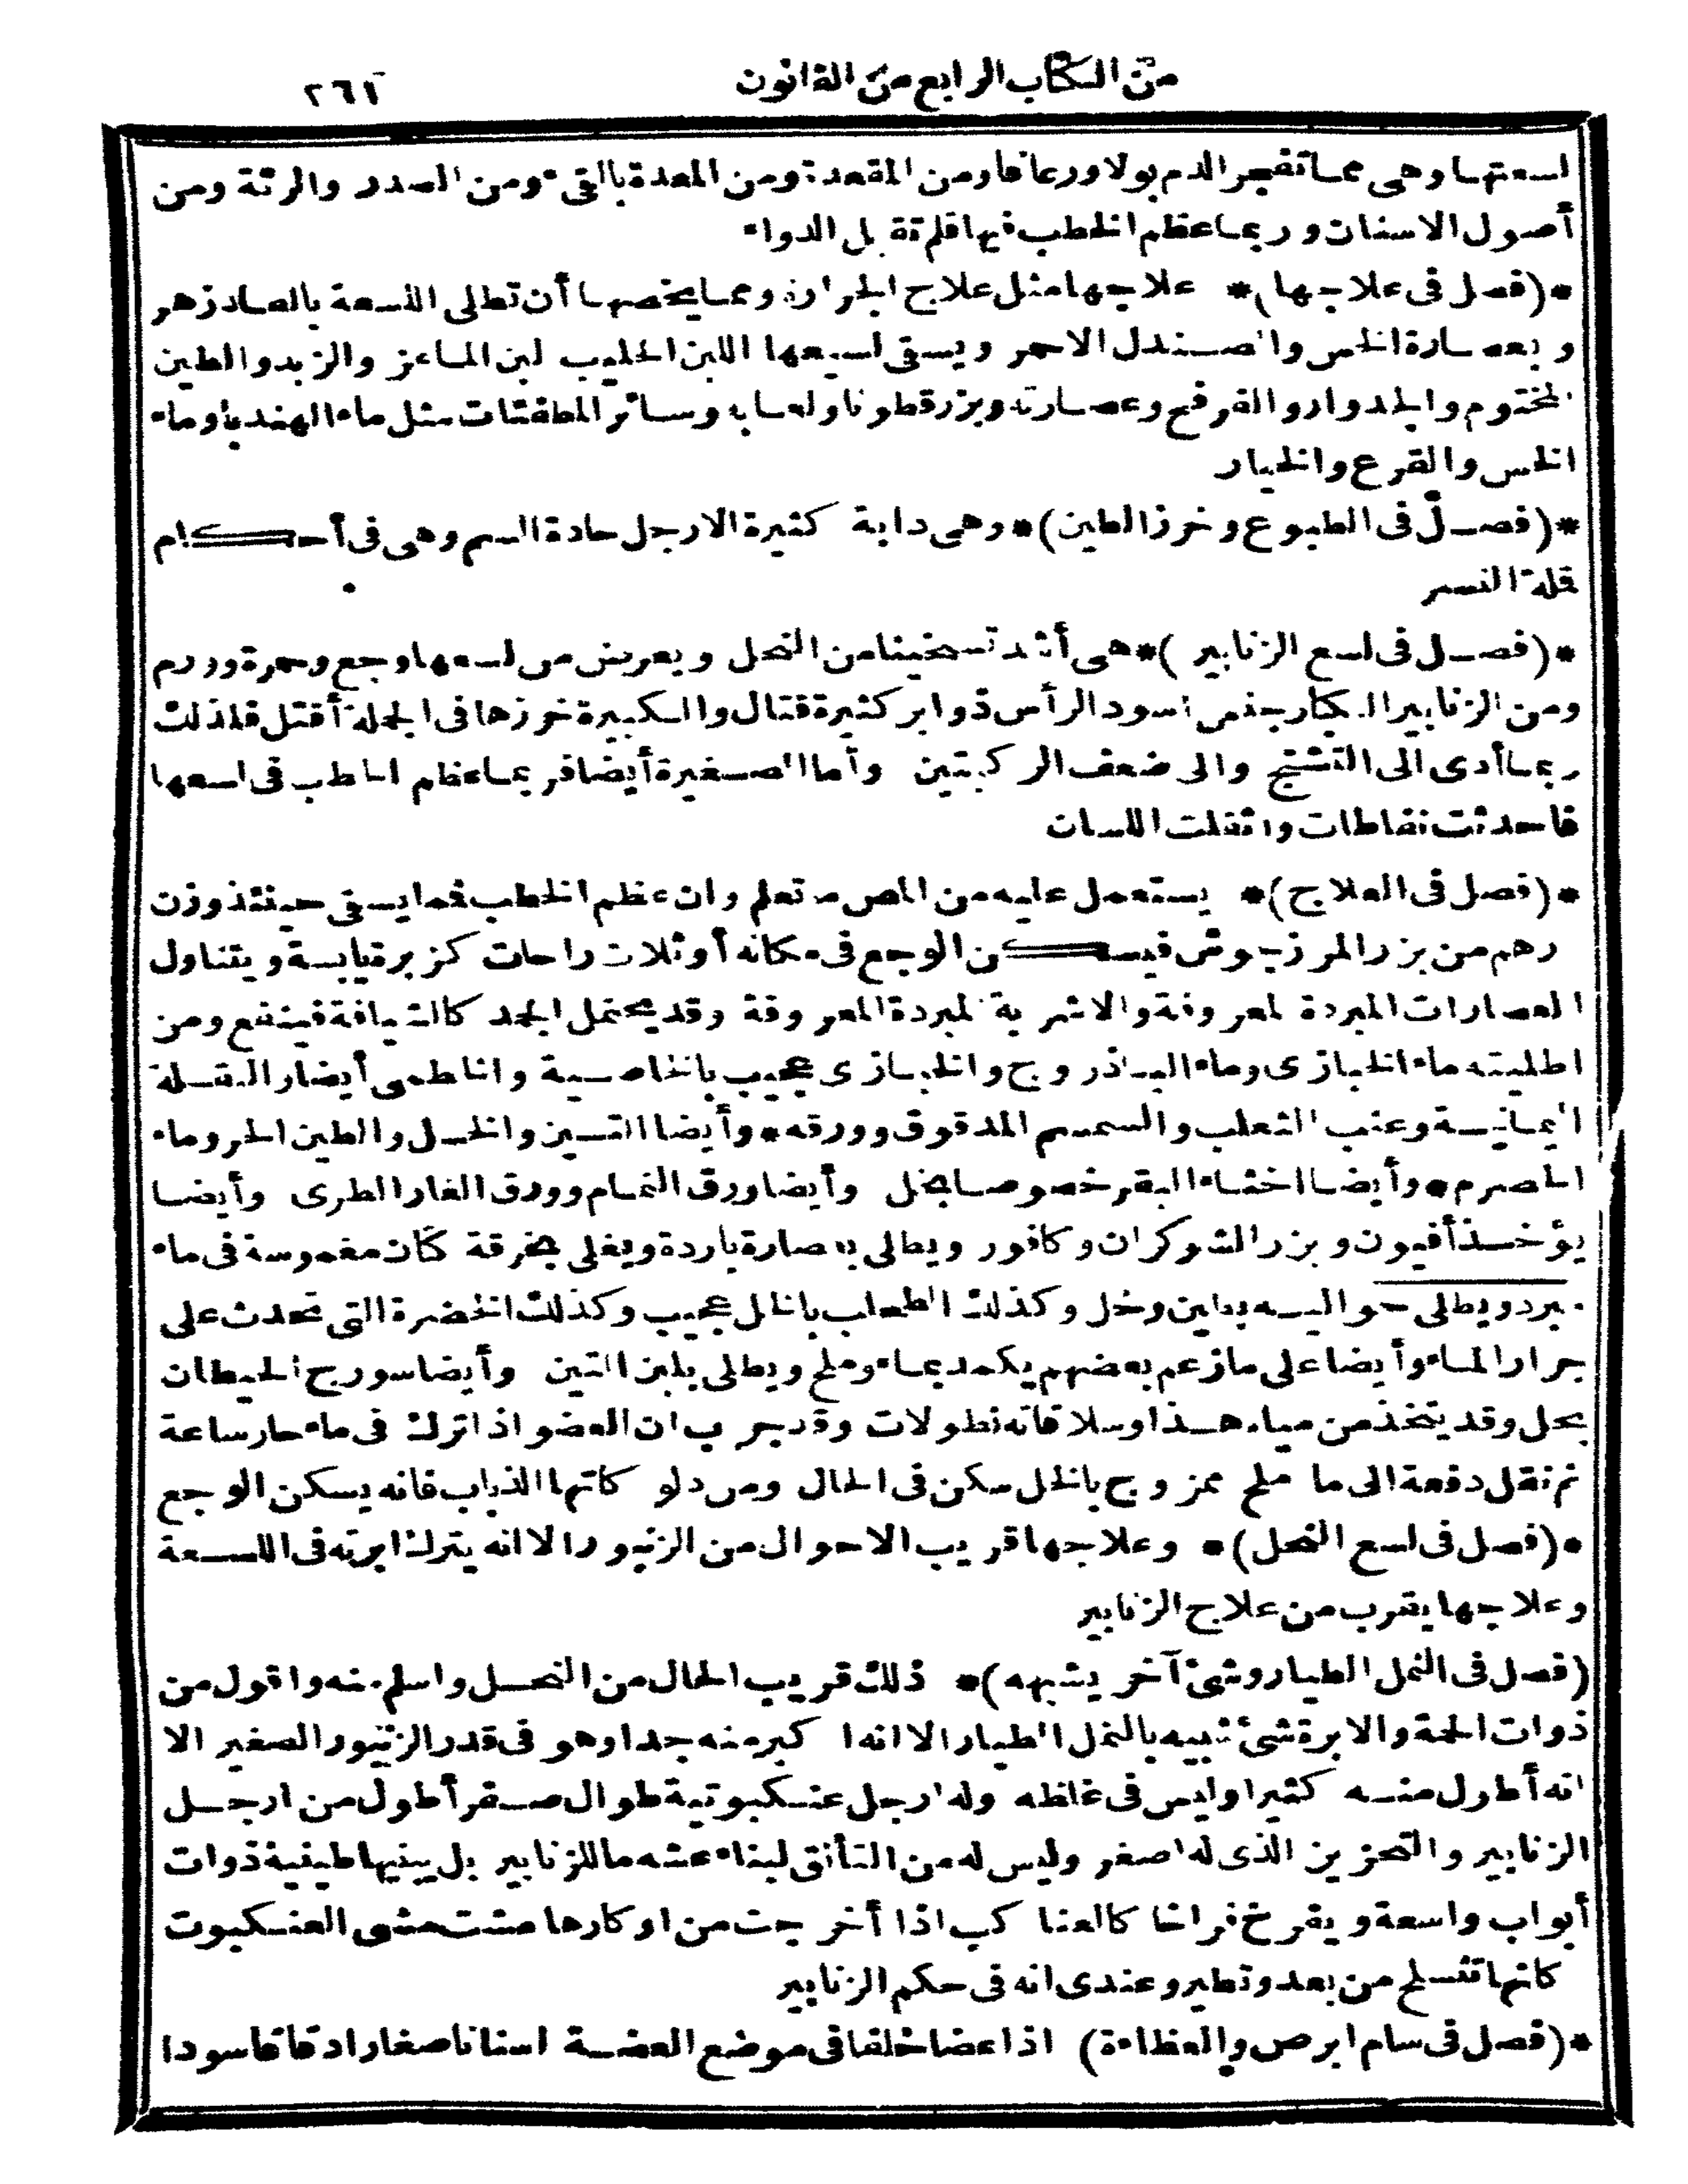 من الكتاب الرابع من القانون ٢٦١
لسعتها وهى مما تفجر الدم بولا ورعافا ومن المقعدة ومن المعدة بالقىء ومن الصدر والرئة ومن
أصول الاسنان وربما عظم الخطب فيها فلم تقبل الدواء
*(فصل فى علاجها)* علاجها مثل علاج الجرارة ومما يخصها أن تطلى اللسعة بالصادزهر
وبعصارة الخس والصندل الاحمر ويسقى لسيعها اللبن الحليب لبن الماعز والزبد والطين
المختوم والجدوار والقرفخ وعصارته وبزرقطونا ولعابه وسائر المطفئات مثل ماء الهندبا وماء
الخس والقرع والخيار
*(فصل فى الطبوع وخرز الطين)* وهى دابة كثيرة الارجل حادة السم وهى فى أحكام
قلة النسر
*(فصل فى لسع الزنابير)* هى أشد تسخينا من النحل ويعرض من لسعها وجع وحمرة وورم
ومن الزنابير الكبار جنس اسود الرأس ذو ابر كثيرة قتال والكبيرة خرزها فى الجملة أقتل فلذلك
ربما أدى الى التشنج والى ضعف الركبتين وأما الصغيرة أيضا فربما عظم الخطب فى لسعها
فاحدثت نفاطات واثقلت اللسان
*(فصل فى العلاج)* يستعمل عليه من المص ما تعلم وان عظم الخطب فما يسقى حينئذ وزن
درهم من بزر المرزجوش فيسكن الوجع فى مكانه أو ثلاث راحات كزبرة يابسة ويتناول
العصارات المبردة المعروفة والاشربة المبردة المعروفة وقد يحتمل الجمد كالشيافة فينفع ومن
اطليته ماء الخبازى وماء الباذروج والخبازى عجيب بالخاصية والخطمى أيضا والبقلة
اليمانية وعنب الثعلب والسمسم المدقوق وورقه* وأيضا التين والخل والطين الحر وماء
الحصرم* وأيضا اخثاء البقر خصوصا بخل وأيضا ورق النمام وورق الغار الطرى وأيضا
يؤخذ أفيون وبزر الشوكران وكافور ويطلى بعصارة باردة ويغلى بخرقة كان مغموسة فى ماء
مبرد ويطلى حواليه بطين وخل وكذلك الطحلب بالخل عجيب وكذلك الخضرة التى تحدث على
جرار الماء وأيضا على ما زعم بعضهم يكمد بماء وملح ويطلى بلبن التين وأيضا سورج الحيطان
بخل وقد يتخذ من مياه هذا وسلاقاته نطولات وقد جرب ان العضو اذا ترك فى ماء حار ساعة
ثم نقل دفعة الى ما ملح ممزوج بالخل سكن فى الحال ومن دلوكاتها الذباب فانه يسكن الوجع
*(فصل فى لسع النحل)* وعلاجها قريب الاحوال من الزنبور الا انه يترك ابرته فى اللسعة
وعلاجها يقرب من علاج الزنابير
(فصل فى النمل الطيار وشئ آخر يشبهه)* ذلك قريب الحال من النحل واسلم منه واقول من
ذوات الحمة والابرة شئ شبيه بالنمل الطيار الا انه اكبر منه جدا وهو فى قدر الزنبور الصغير الا
انه أطول منه كثيرا وليس فى غلظه وله ارجل عنكبوتية طوال صفر أطول من ارجل
الزنابير والتحزيز الذى له اصغر وليس له من التأنق لبناء عشه ما للزنابير بل يبنيها طينية ذوات
أبواب واسعة ويفرخ فراخا كالعناكب اذا أخرجت من اوكارها مشت مشى العنكبوت
كانها تنسلح من بعد وتطير وعندى انه فى حكم الزنابير
*(فصل فى سام ابرص والعظاءة) اذا عضا خلفا فى موضع العضة اسنانا صغارا دقاقا سودا